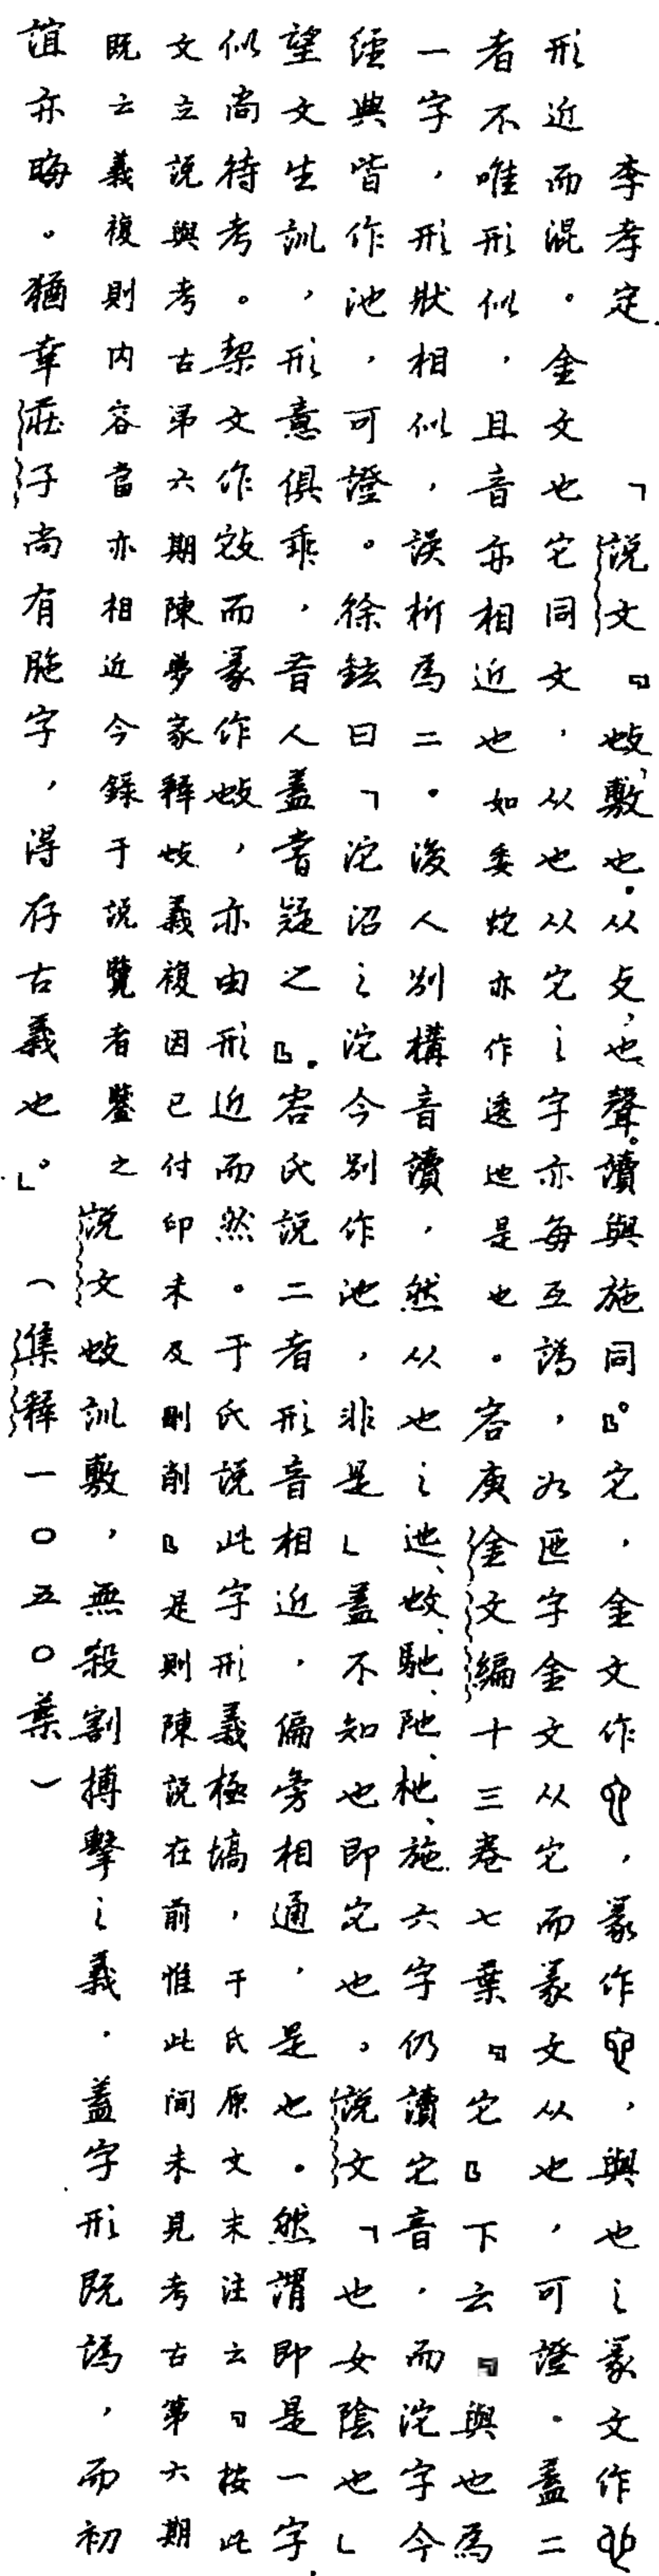 李孝定　「說文『𢻱,敷也.从攴,也聲。讀與施同』。它，金文作，篆作，與也之篆文作
形近而混。金文也它同文，从也从它之字亦每互譌，如匜字金文从它而篆文从也，可證．蓋二
者不唯形似，且音亦相近也如委蛇亦作逶迆是也。容庚金文編十三卷七葉『它』下云『與也為
一字，形狀相似，誤析為二。後人別構音讀，然从也之迆、𢻱、馳、阤、杝、施六字仍讀它音，而沱字今
經典皆作池，可證。徐鉉曰「沱沼之沱今別作池，非是」蓋不知也即它也，說文「也女陰也」
望文生訓，形意俱乖，昔人蓋嘗疑之』．容氏說二者形音相近，偏旁相通，是也。然謂即是一字．
似尚待考。栔文作㪔而篆作𢻱，亦由形近而然。于氏說此字形義極塙，于氏原文末注云『按此
文立說與考古弟六期陳夢家釋𢻱義複因已付印未及刪削』是則陳說在前惟此間未見考古第六期
既云義複則內容當亦相近今錄于說覽者鑒之　說文𢻱訓敷，無殺割搏擊之義．蓋字形既譌，而初
誼亦晦。猶幸莊子尚有胣字，得存古義也」。（集釋一〇五〇葉）